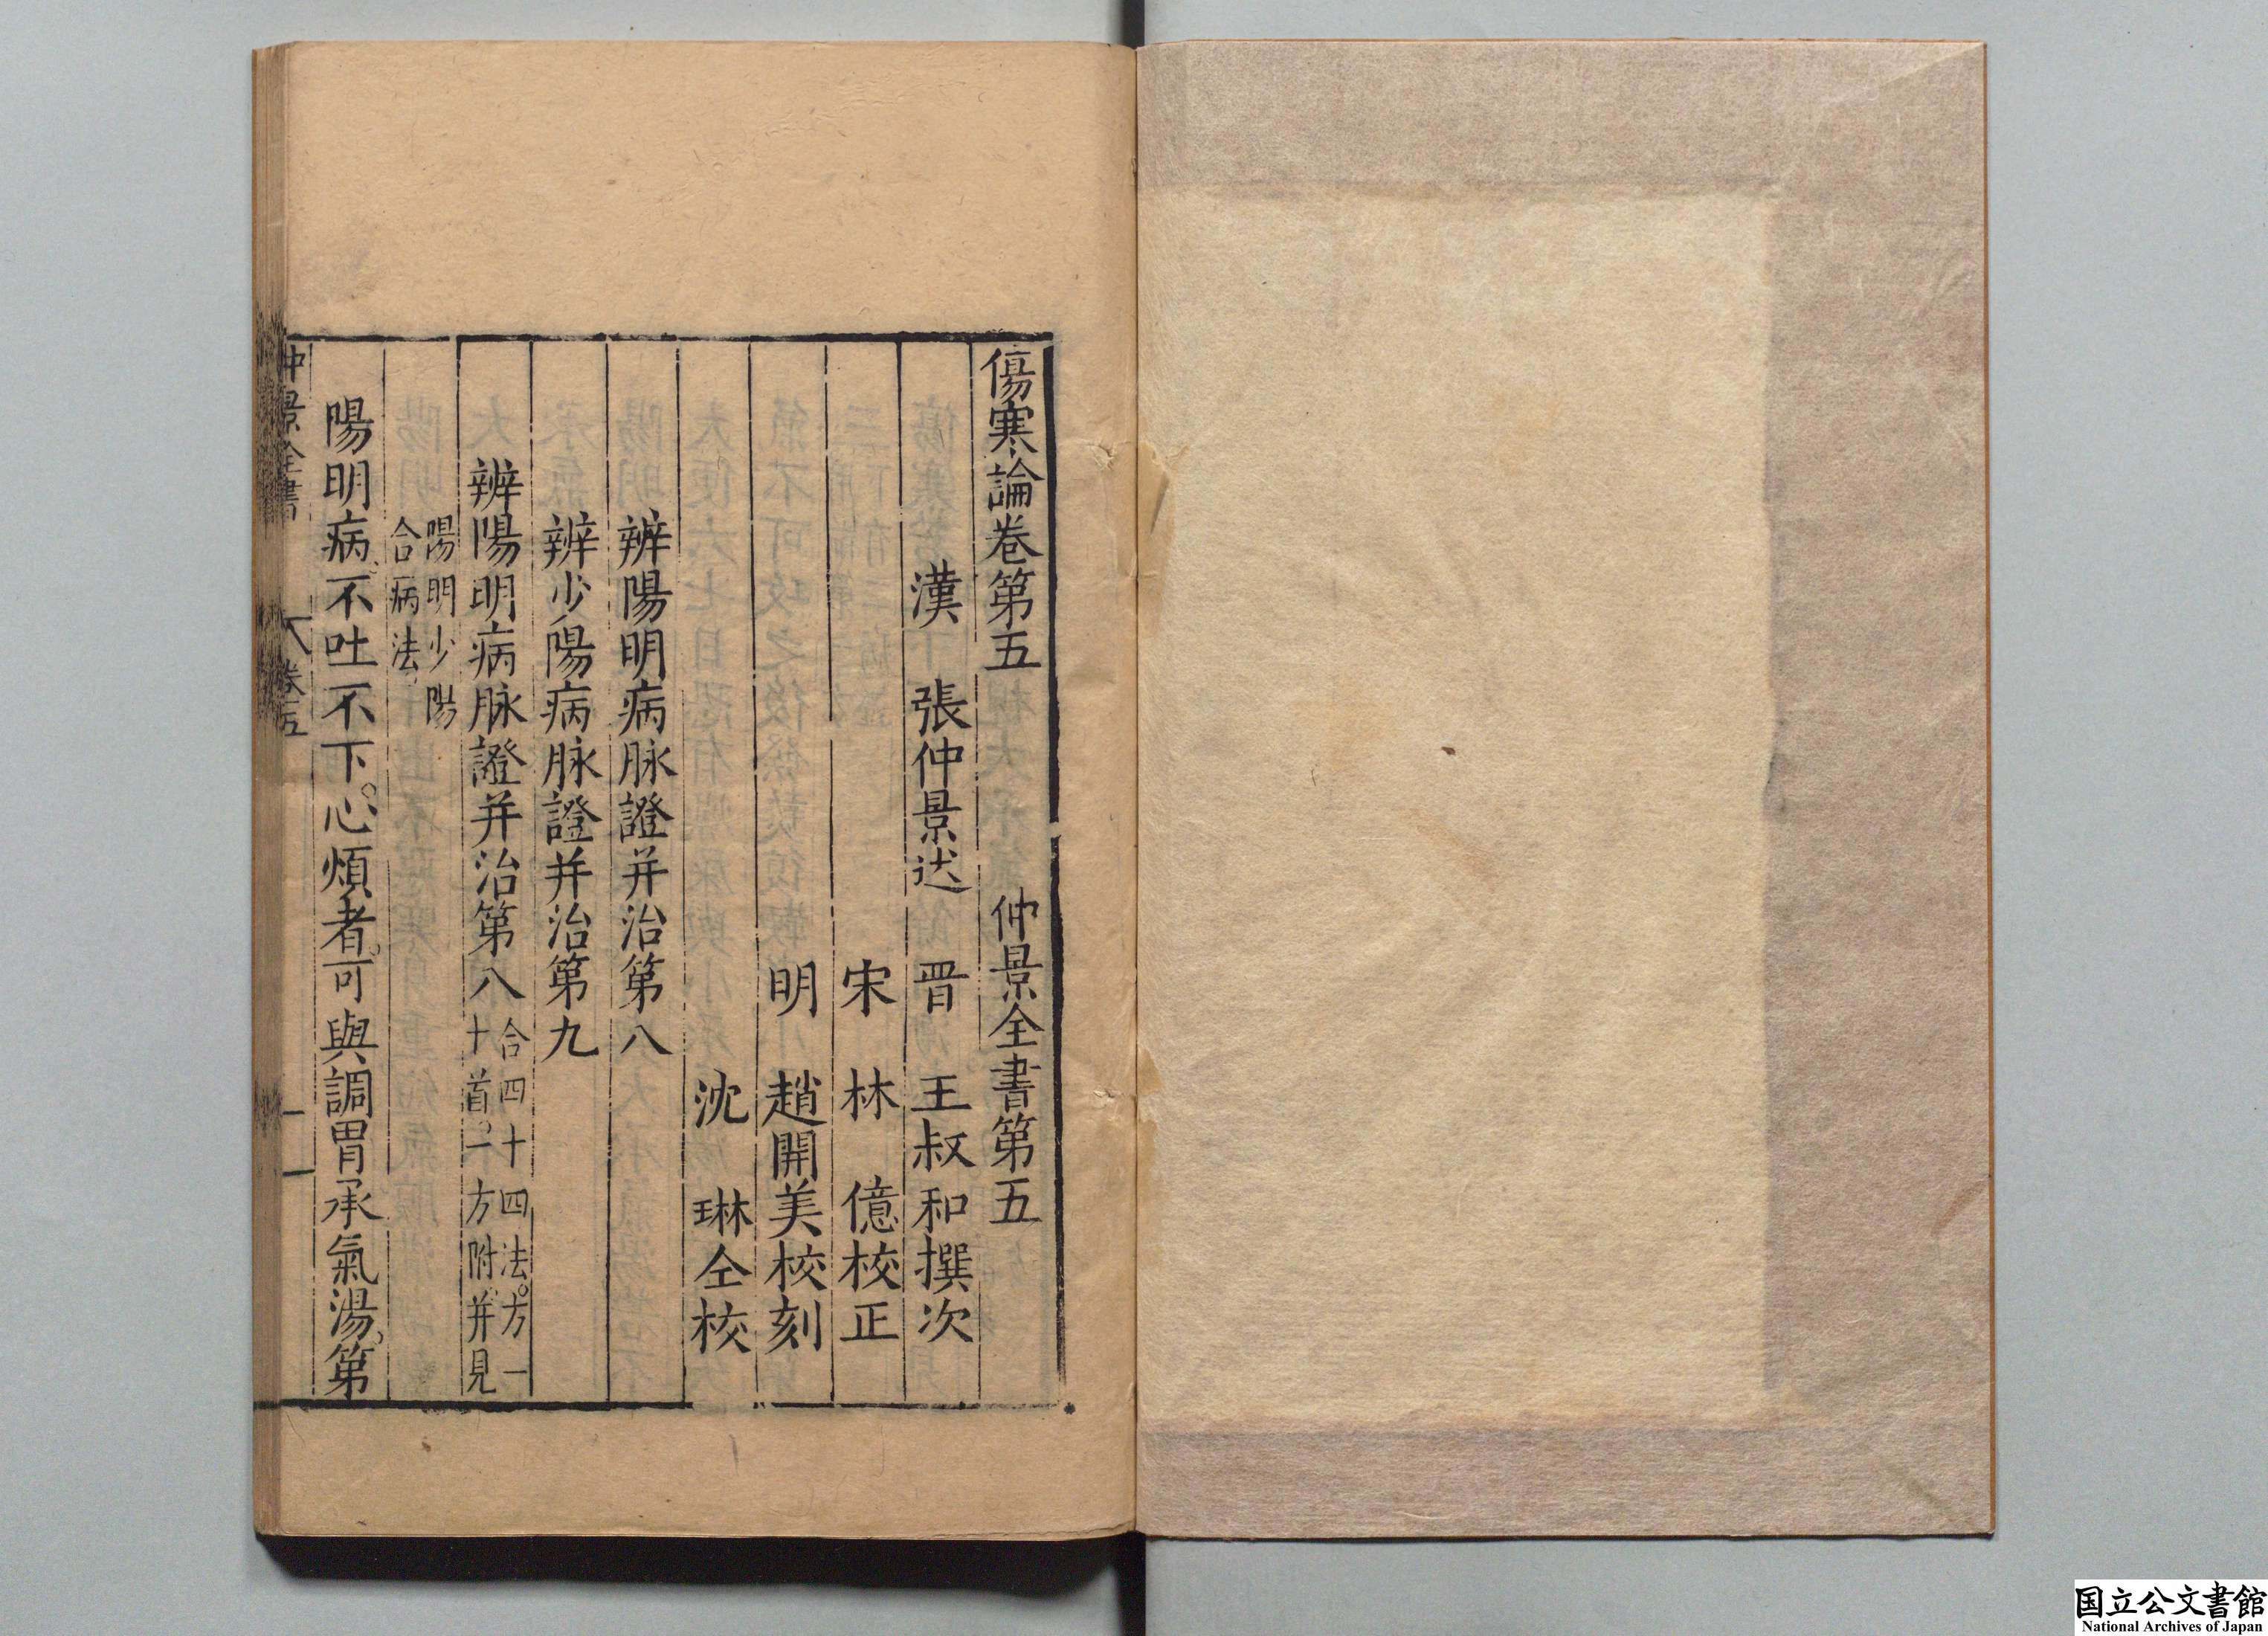 傷寒論卷第五　仲景全書第五
漢　張仲景述　晋　王叔和撰次
宋　林　億校正
明　趙開美校刻
沈　琳仝校
辨陽明病脉證并治第八
辨少陽病脉證并治第九
辨陽明病脉證并治第八
合四十四法。方一
十首。一方附。并見
陽明少陽
合病法
陽明病。不吐不下。心煩者。可與調胃承氣湯。第
仲景全書　卷五　一
国立公文書館
National Archives of Japan